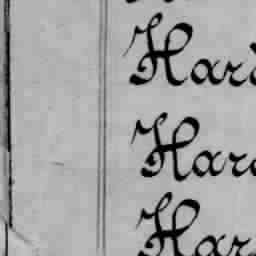 Hard
Hard
Har